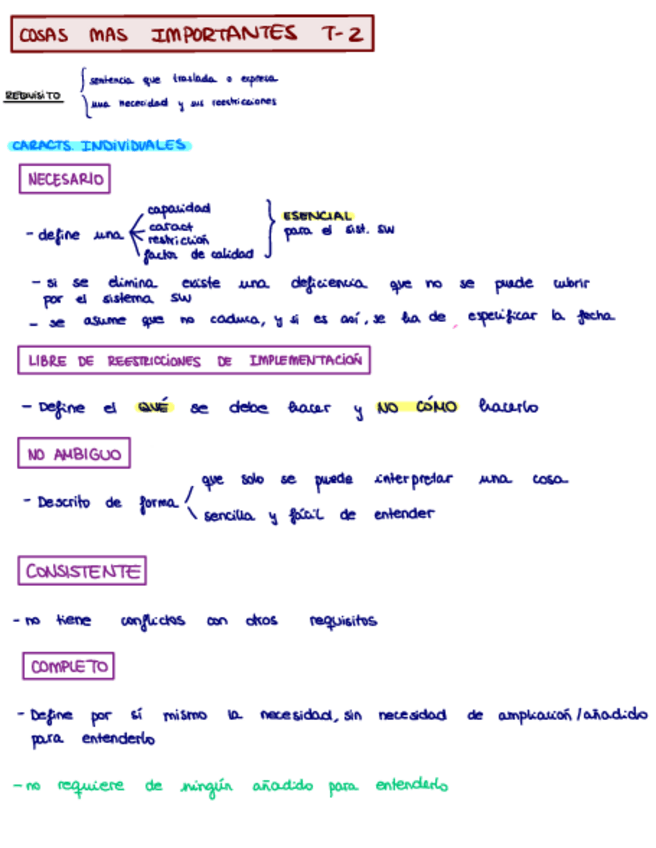 COSAS MAS IMPORTANTES T-2
sentencia que traslada o expresa
REQUISITO
una necesidad y sus reestricciones
CARACTS. INDIVIDUALES
NECESARIO
capacidad
- define una caract
restricción
factor de calidad
ESENCIAL
para el sist. SW
- si se elimina existe una deficiencia que no se puede cubrir
por el sistema SW
- se asume que no caduca, y si es así, se ha de especificar la fecha
LIBRE DE REESTRICCIONES DE IMPLEMENTACIÓN
- Define el QUÉ se debe hacer y NO CÓMO hacerlo
NO AMBIGUO
que solo se puede interpretar una cosa
- Descrito de forma
sencilla y fácil de entender
CONSISTENTE
- no tiene conflictos con otros requisitos
COMPLETO
- Define por sí mismo la necesidad, sin necesidad de ampliación/añadido
para entenderlo
- no requiere de ningún añadido para entenderlo